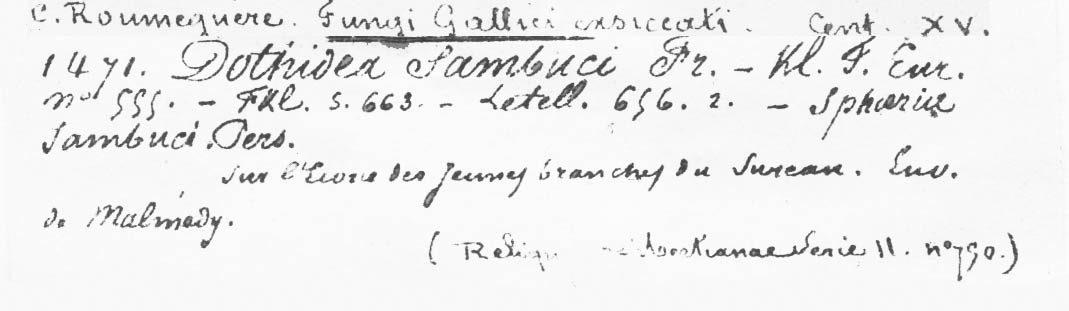 C. Roumeguère. Fungi Gallici exsiccati. Cent. XV.
1471. Dothidea Sambuci Fr. - Kl. F. Eur.
no 555. - Fkl. S. 663. - Letell. 656. 2. - Sphæria
Sambuci Pers.
Sur l'Ecorce des jeunes branches du Sureau. Env.
de Malmédy.
( Serie II. no 750.)